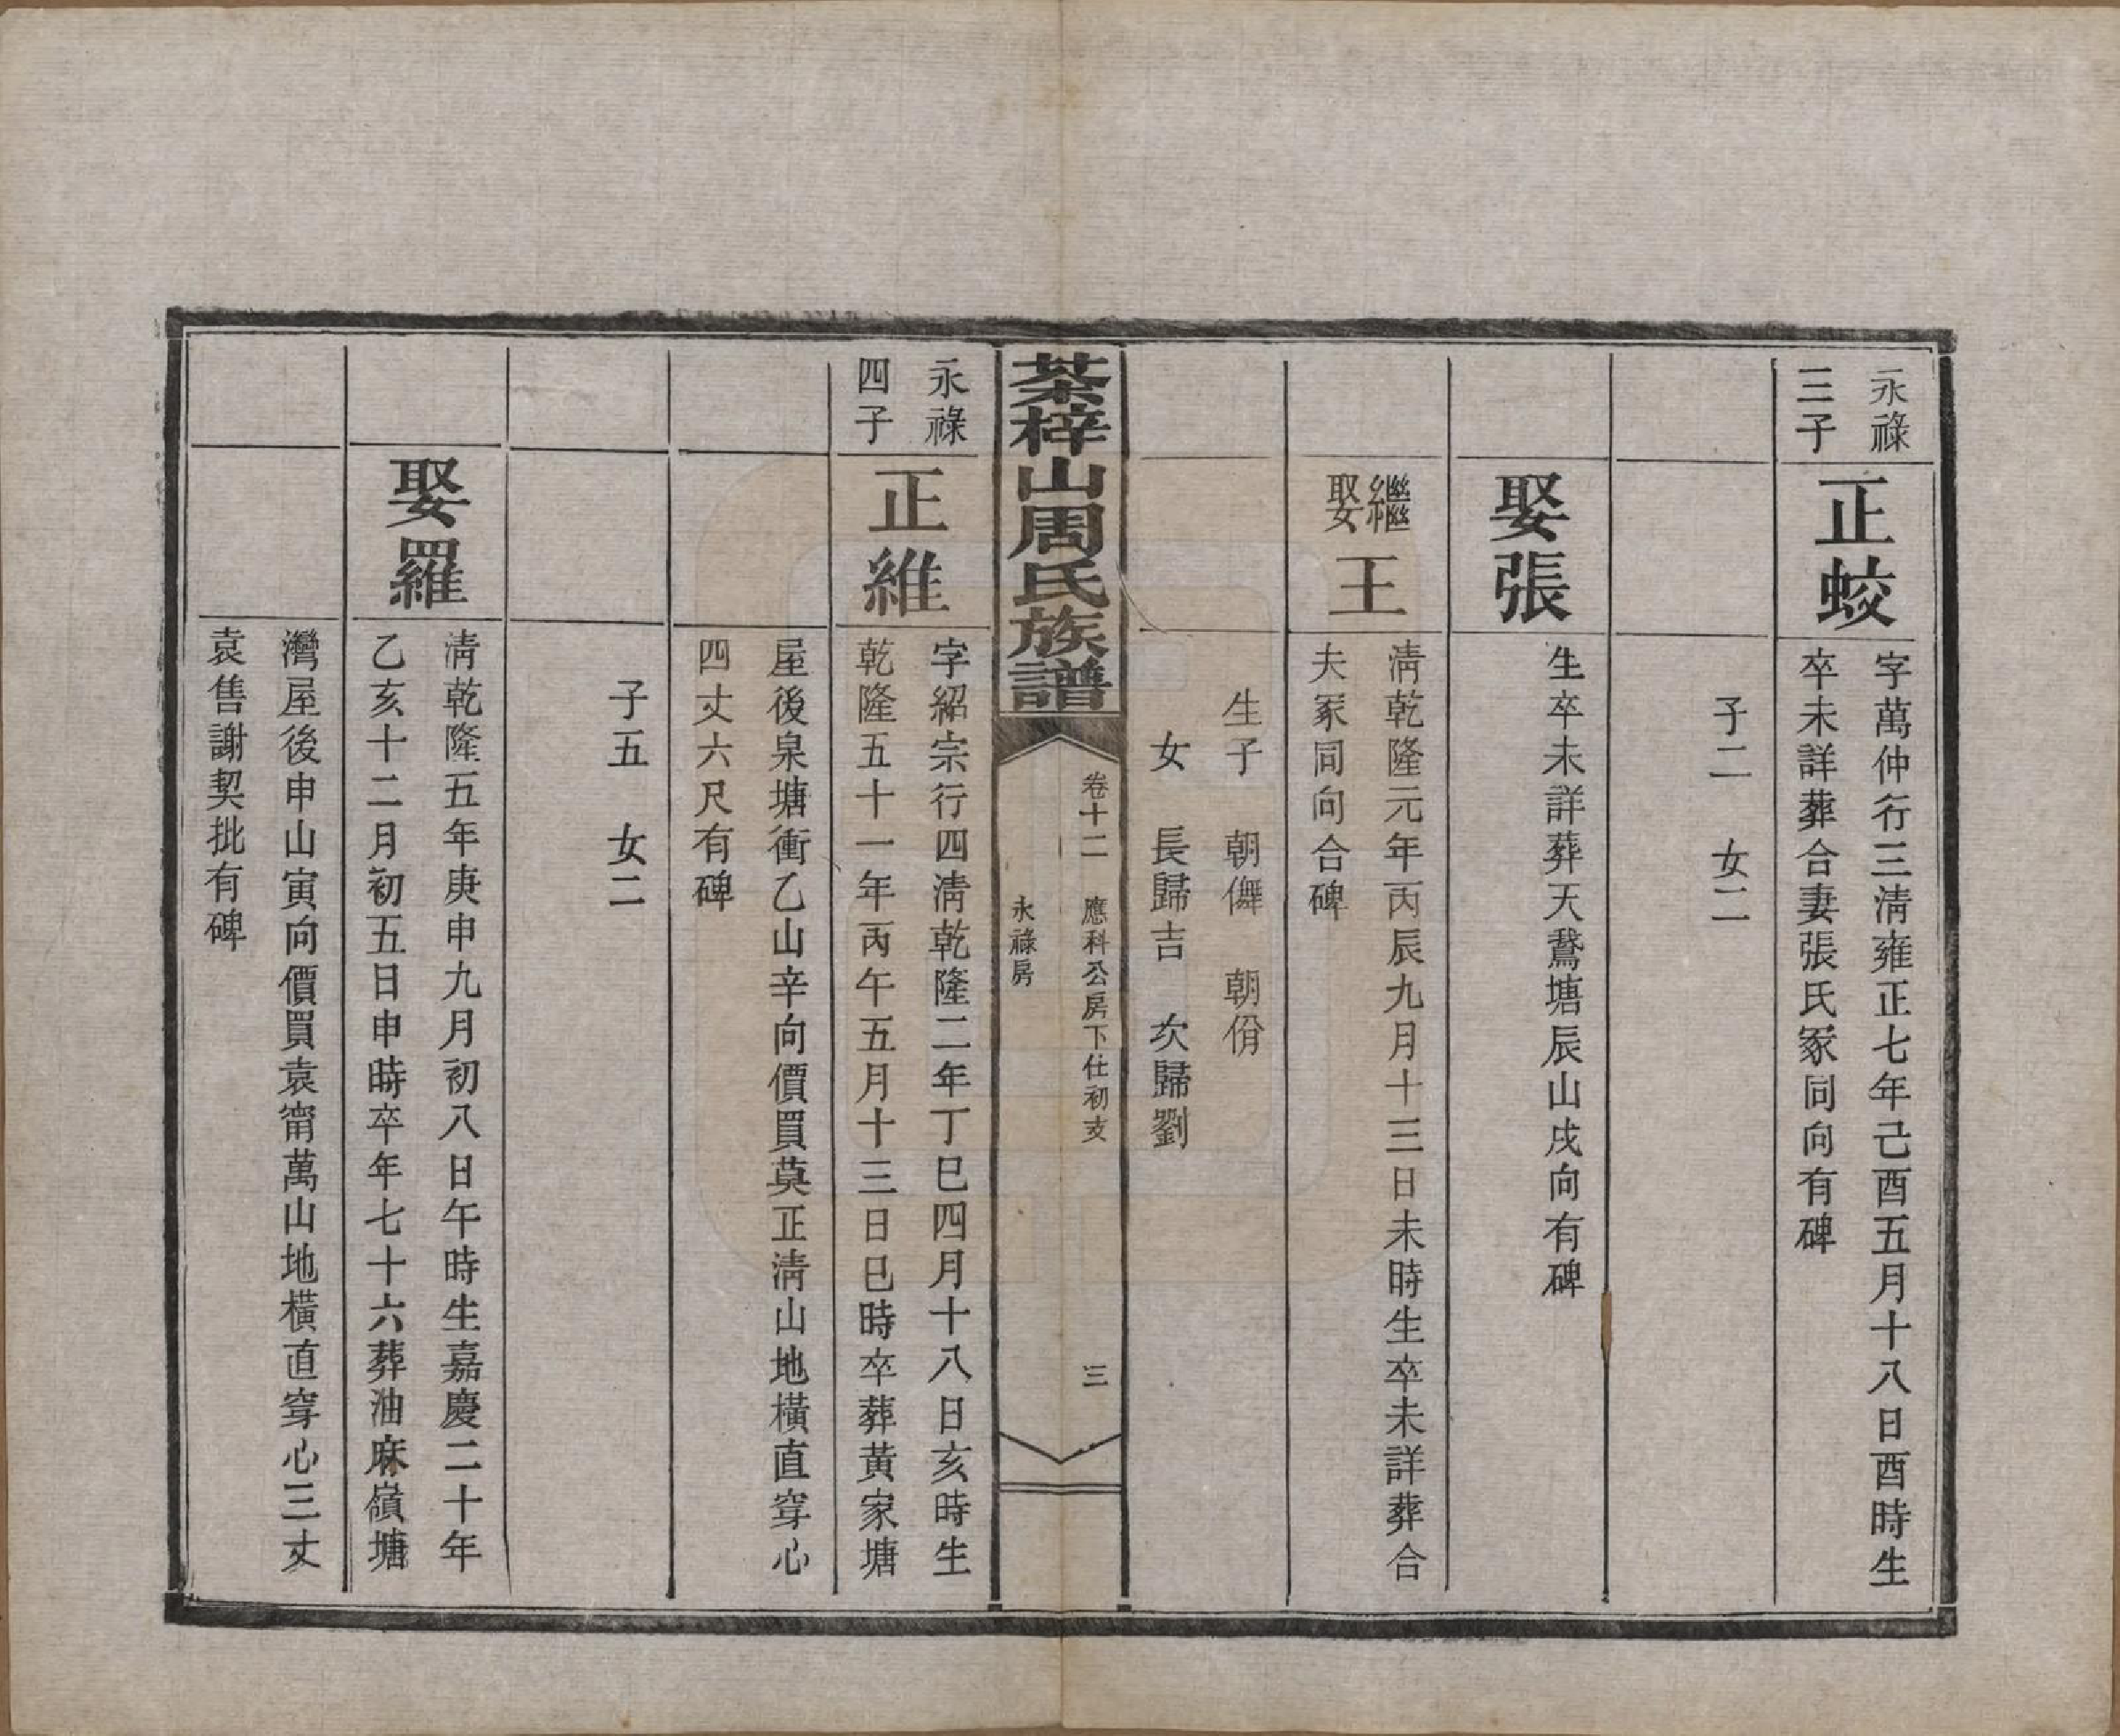 永祿
三子
正蛟
字萬仲行三淸雍正七年己酉五月十八日酉時生
卒未詳葬合妻張氏冢同向有碑
子二　女二
娶張
生卒未詳葬天鵞塘辰山戌向有碑
繼娶王
淸乾隆元年丙辰九月十三日未時生卒未詳葬合
夫冢同向合碑
生子　朝儛　朝佾
女　長歸吉　次歸劉
茶梓山周氏族譜
卷十二　應科公房下仕初支
永祿房
三
永祿
四子
正維
字紹宗行四淸乾隆二年丁巳四月十八日亥時生
乾隆五十一年丙午五月十三日巳時卒葬黃家塘
屋後泉塘衝乙山辛向價買莫正淸山地橫直穿心
四丈六尺有碑
子五　女二
娶羅
淸乾隆五年庚申九月初八日午時生嘉慶二十年
乙亥十二月初五日申時卒年七十六葬油麻嶺塘
灣屋後申山寅向價買袁甯萬山地橫直穿心三丈
袁售謝契批有碑